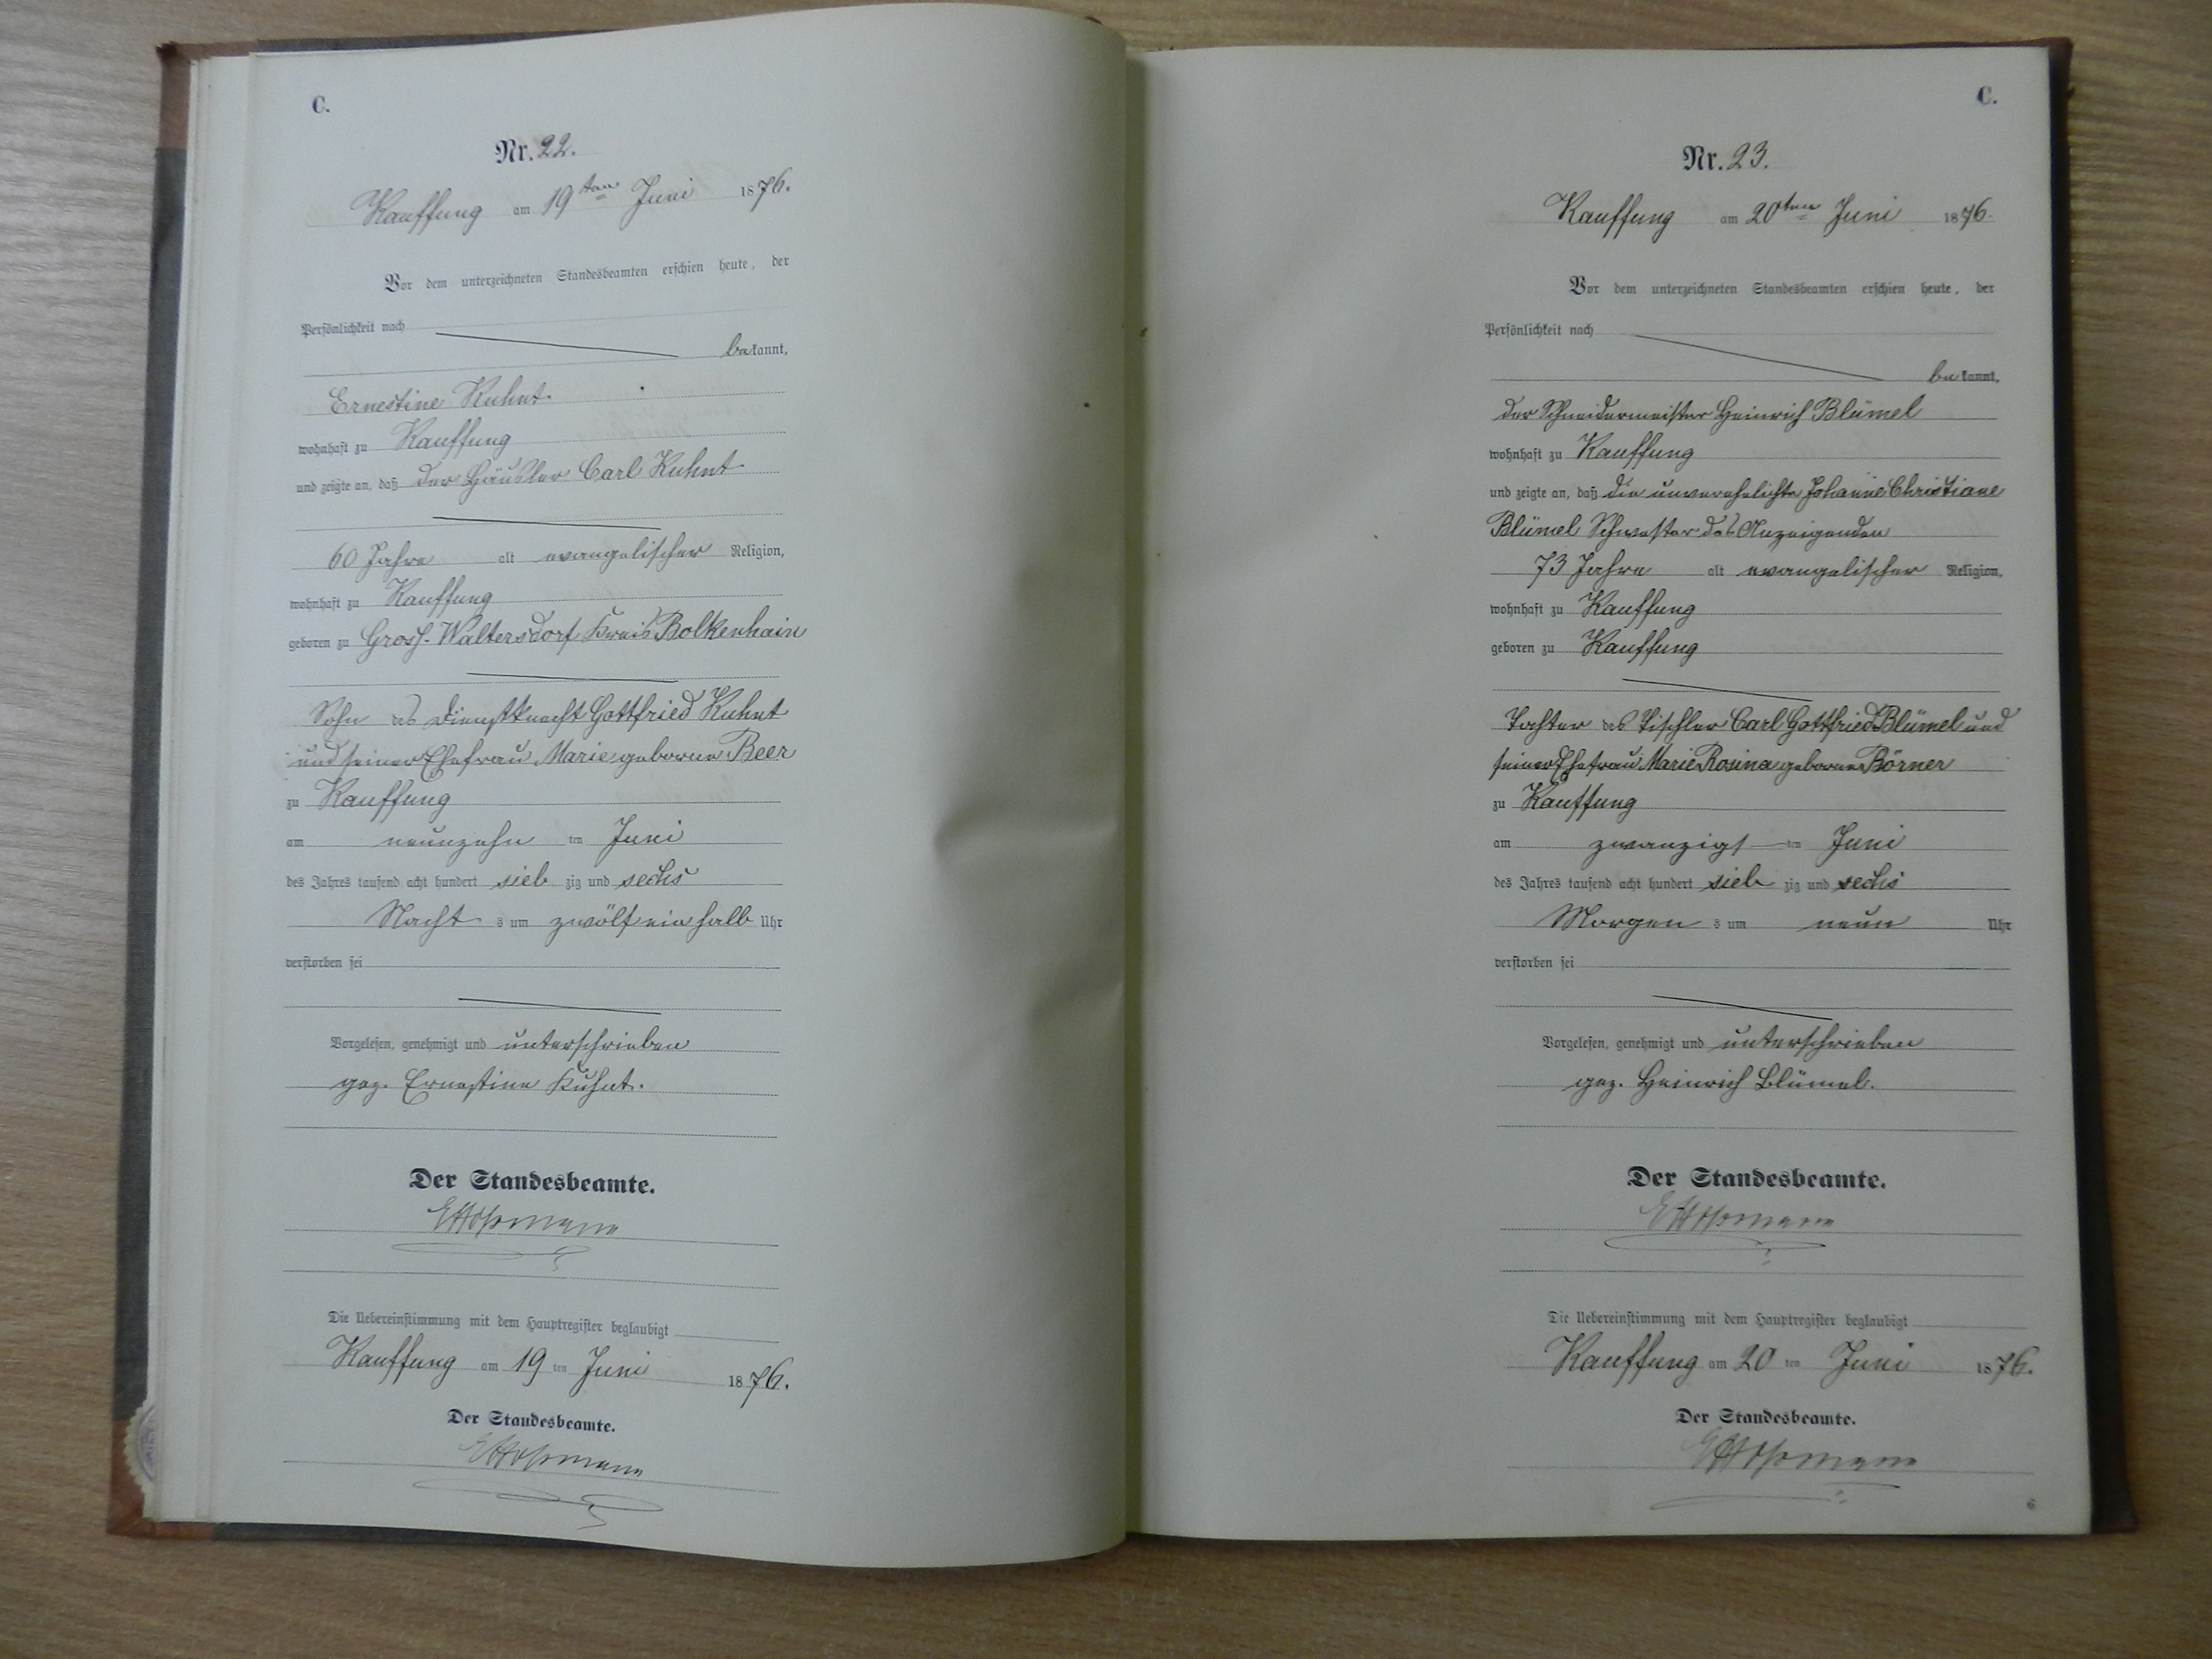 C.
Nr. 22.
Kauffung am 19ten Juni 1876.
Vor dem unterzeichneten Standesbeamten erschien heute, der
Persönlichkeit nach
bekannt,
Ernestine Kuhnt.
wohnhaft zu Kauffung
und zeigte an, daß der Häusler Carl Kuhnt
60 Jahre alt evangelischer Religion,
wohnhaft zu Kauffung
geboren zu Gross-Waltersdorf Kreis Bolkenhain
Sohn des Dienstknecht Gottfried Kuhnt
und seiner Ehefrau Marie geborne Beer
zu Kauffung
am neunzehn ten Juni
des Jahres tausend acht hundert sieb zig und sechs
Nacht s um zwölf ein halb Uhr
verstorben sei
Vorgelesen, genehmigt und unterschrieben
gez. Ernestine Kuhnt.
Der Standesbeamte.
Die Uebereinstimmung mit dem Hauptregister beglaubigt
Kauffung am 19 ten Juni 1876.
Der Standesbeamte.
C.
Nr. 23.
Kauffung am 20ten Juni 1876.
Vor dem unterzeichneten Standesbeamten erschien heute, der
Persönlichkeit nach
bekannt,
der Schneidermeister Heinrich Blümel
wohnhaft zu Kauffung
und zeigte an, daß die unverehelichte Johanne Christiane
Blümel Schwester des Anzeigenden
73 Jahre alt evangelischer Religion,
wohnhaft zu Kauffung
geboren zu Kauffung
Tochter des Tischler Carl Gottfried Blümel und
seiner Ehefrau Marie Rosina geborne Börner
zu Kauffung
am zwanzigs ten Juni
des Jahres tausend acht hundert sieb zig und sechs
Morgen s um neun Uhr
verstorben sei
Vorgelesen, genehmigt und unterschrieben
gez. Heinrich Blümel.
Der Standesbeamte.
Die Uebereinstimmung mit dem Hauptregister beglaubigt
Kauffung am 20 ten Juni 1876.
Der Standesbeamte.
6